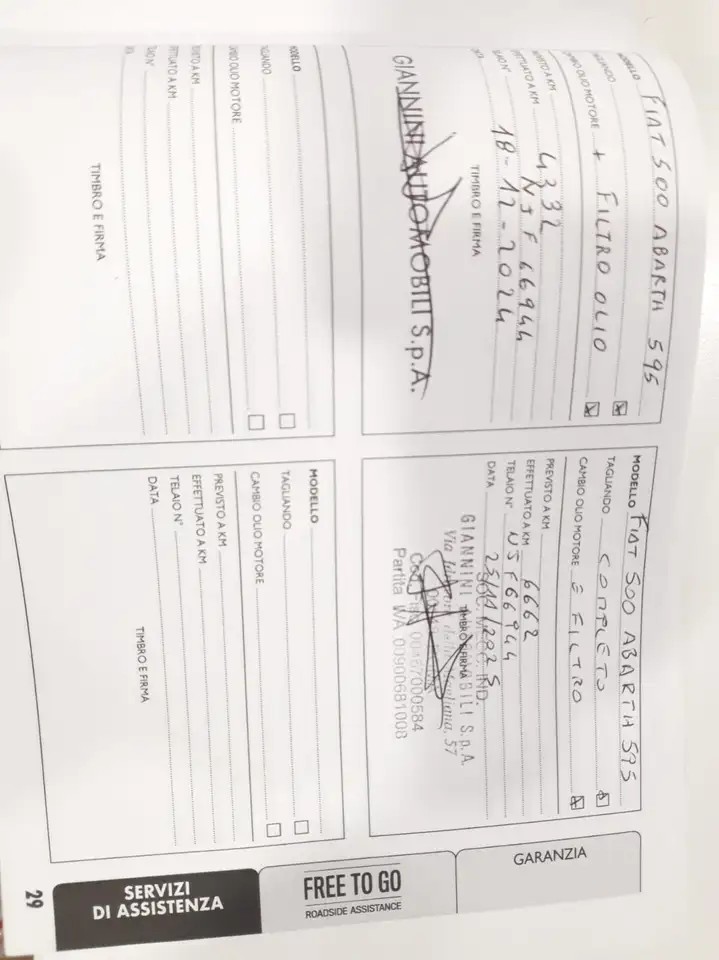 MODELLO FIAT 500 ABARTH 595
TAGLIANDO
CAMBIO OLIO MOTORE + FILTRO OLIO
EFFETTUATO A KM 4332
TELAIO N° NJF66944
18-12-2024
TIMBRO E FIRMA
GIANNINI AUTOMOBILI S.p.A.
MODELLO FIAT 500 ABARTH 595
TAGLIANDO COMPLETO
CAMBIO OLIO MOTORE E FILTRO
PREVISTO A KM
EFFETTUATO A KM 6662
TELAIO N° NJF66944
DATA 25/11/2025
TIMBRO E FIRMA
IND.
GIANNINI S.p.A.
57
Partita IVA 00900681008
MODELLO
TAGLIANDO
CAMBIO OLIO MOTORE
TIMBRO E FIRMA
MODELLO
TAGLIANDO
CAMBIO OLIO MOTORE
PREVISTO A KM
EFFETTUATO A KM
TELAIO N°
DATA
TIMBRO E FIRMA
GARANZIA
FREE TO GO
ROADSIDE ASSISTANCE
SERVIZI
DI ASSISTENZA
29